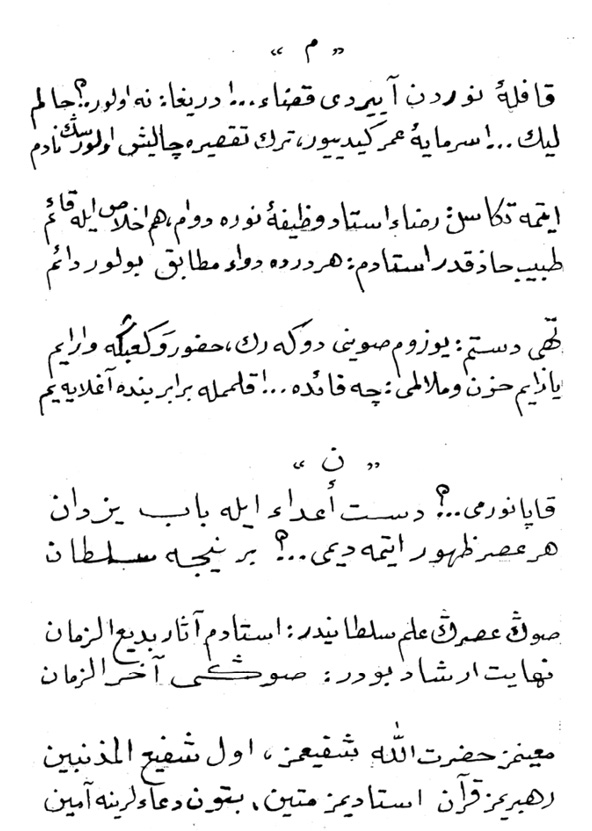 « م »
قافلهٔ نوردن آییردی قضاء...! دریغا: نه اولور؟ حالم
لیك...! سرمایهٔ عمر كیدییور، ترك تقصیره چالیش اولورسڭ نادم
ایتمه تكاسل: رضاء استاد وظیفهٔ نوره دوام، هم اخلاص ایله قائم
طبیب حاذقدر استادم: هر درده دواء مطابق بولور دائم
تهی دستم: یوزوم صوینی دوكه رك، حضور و كعبه‌ڭه وارایم
یازایم حزن وملالمی: چه فائده...! قلمله برابر بنده آغلایه یم
« ن »
قاپانورمی...؟ دست أعداء ایله باب یزدان
هر عصر ظهور ایتمه دیمی...؟ بر نیجه سلطان
صوڭ عصرڭ علم سلطانیدر: استادم آثار بدیع الزمان
نهایت ارشاد بودر: صوڭی آخر الزمان
معینمز حضرت الله شفیعمز، اول شفیع المذنبین
رهبریمز قرآن استادیمز متین، بتون دعاء لرینه آمین